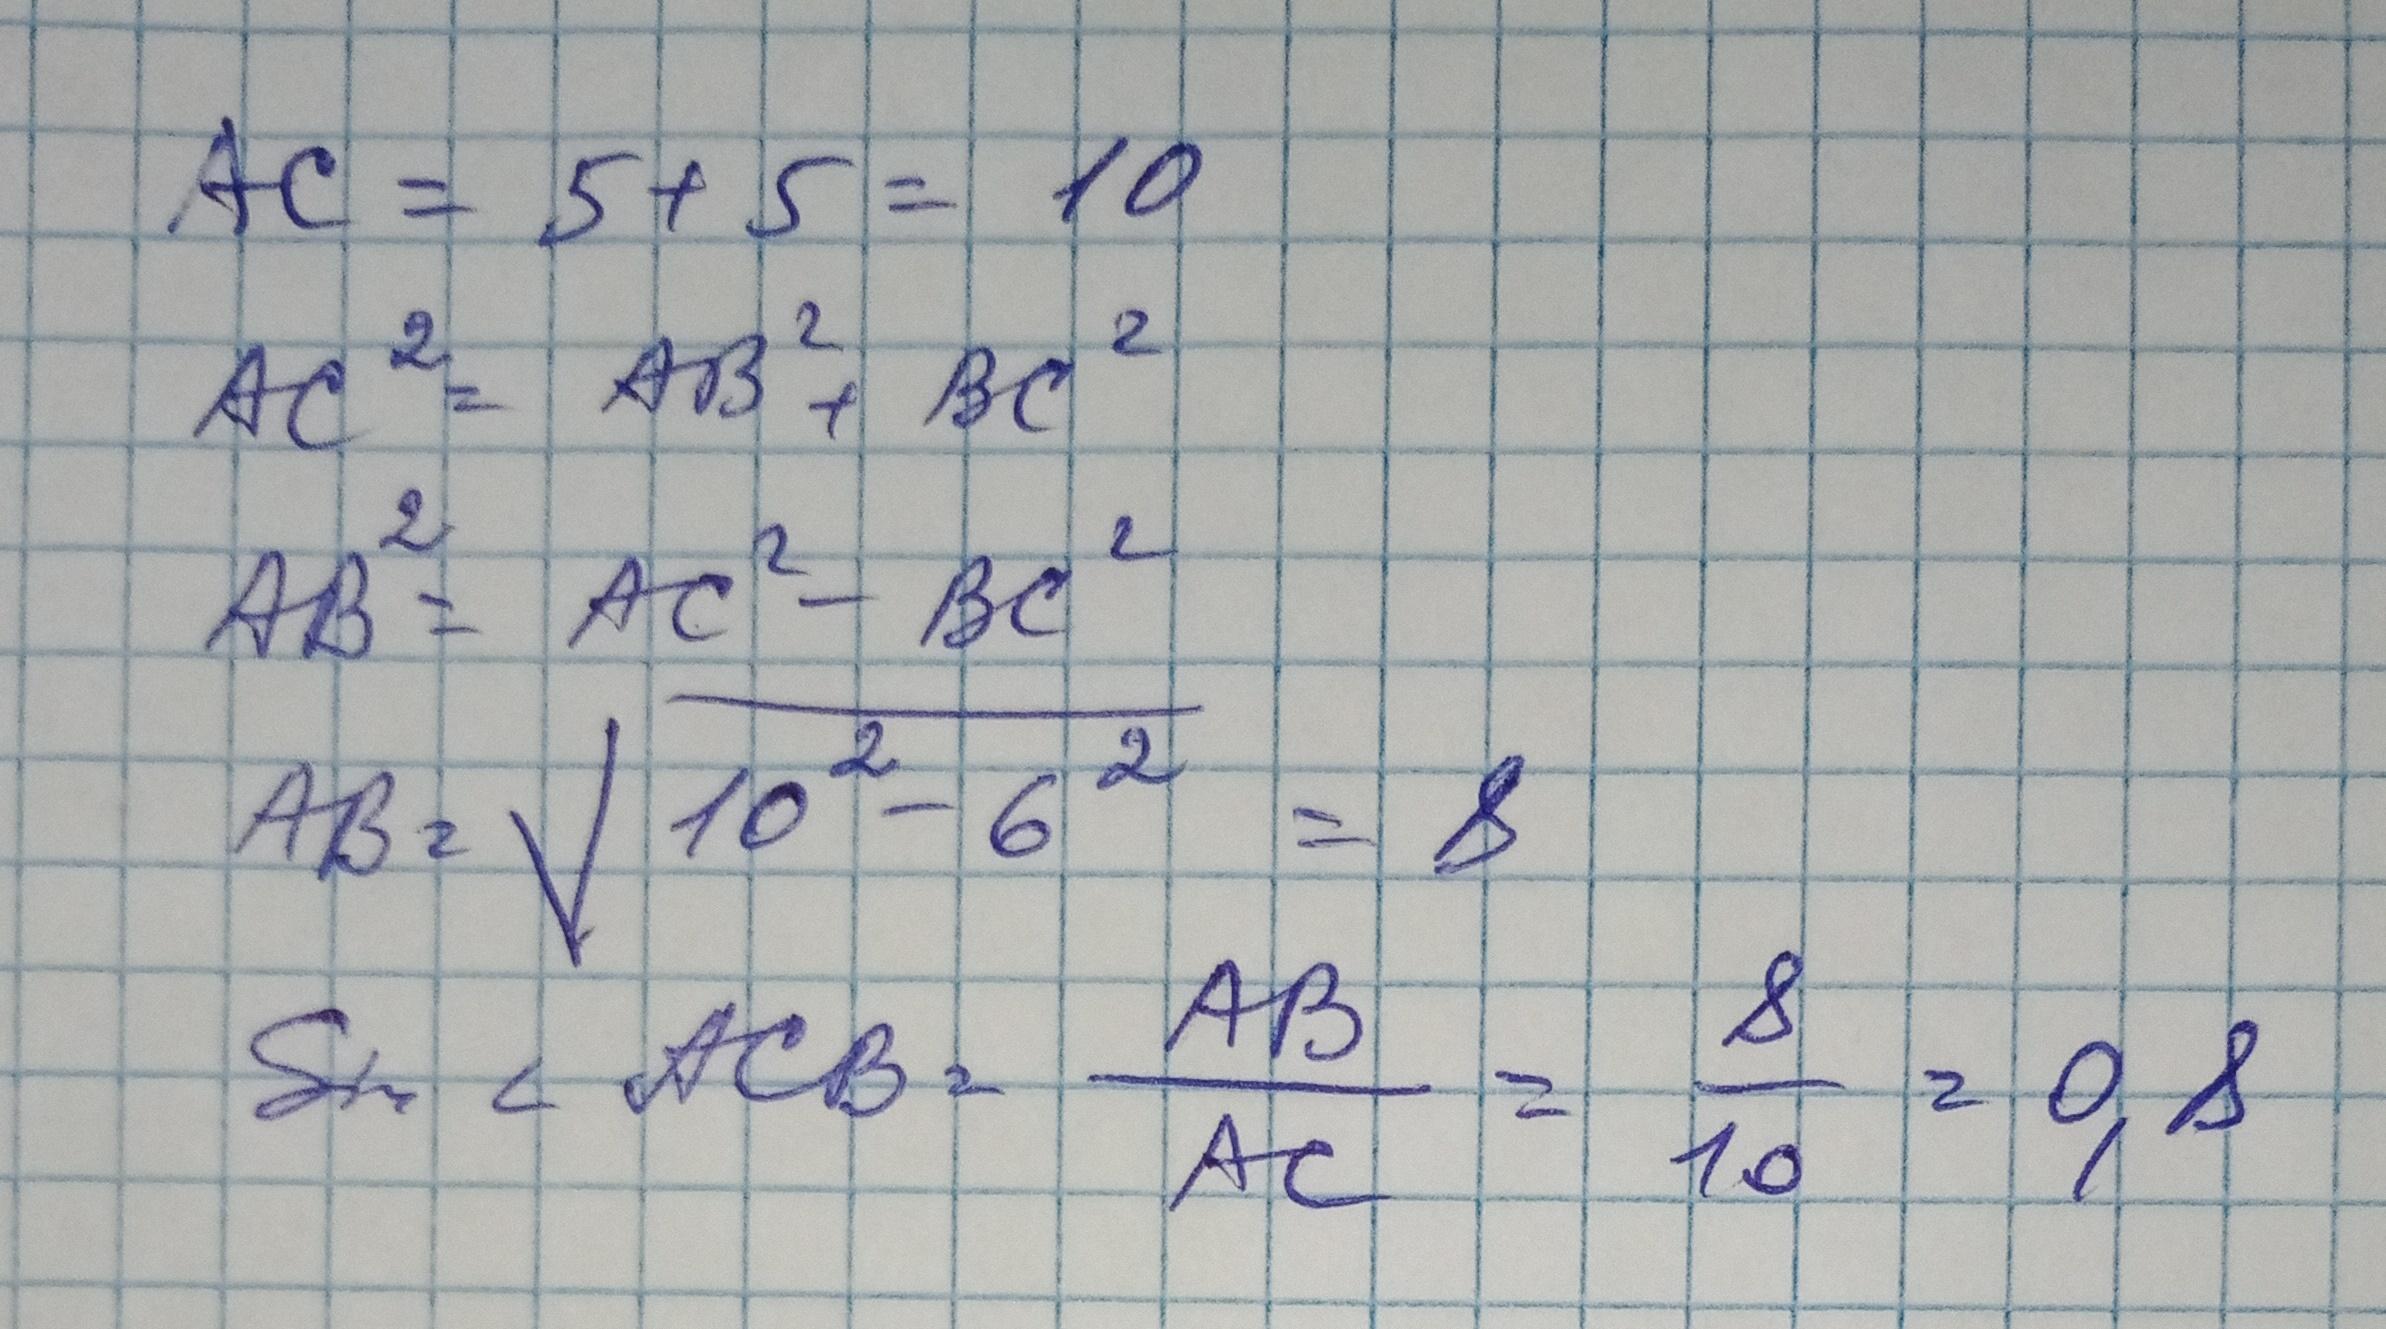 AC = 5 + 5 = 10
AC² = AB² + BC²
AB² = AC² - BC²
AB = √10² - 6² = 8
Sin < ACB = AB/AC = 8/10 = 0,8